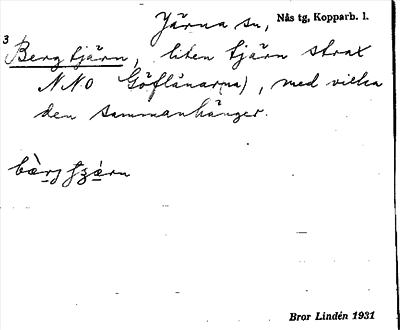 Järna sn, Nås tg, Kopparb. l.
3
Bergtjärn, liten tjärn strax
NNO Göflånarna), med vilka
den sammanhänger.
Bror Lindén 1931